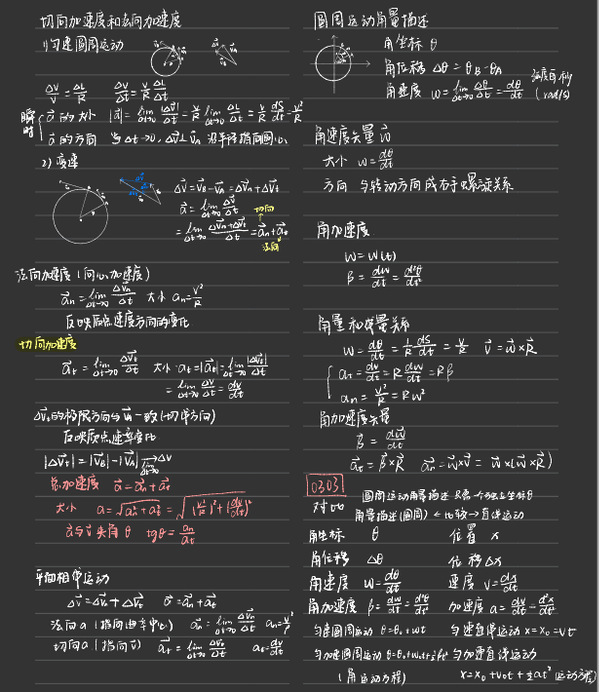 切向加速度和法向加速度
1) 匀速圆周运动
ΔV/V = ΔL/R  ΔV/Δt = V/R ΔL/Δt
瞬时 { a⃗ 的大小 |a⃗| = lim Δt→0 |ΔV⃗|/Δt = V/R lim Δt→0 ΔL/Δt = V/R dS/dt = V²/R
a⃗ 的方向 当 Δt→0, ΔV⃗⊥V⃗A 沿半径指向圆心
2) 变速
ΔV⃗ = V⃗B - V⃗A = ΔV⃗n + ΔV⃗t
a⃗ = lim Δt→0 ΔV⃗/Δt
切向
= lim Δt→0 (ΔV⃗n + ΔV⃗t)/Δt = a⃗n + a⃗t
法向
法向加速度 (向心加速度)
a⃗n = lim Δt→0 ΔV⃗n/Δt 大小 an = V²/R
反映质点速度方向的变化
切向加速度
a⃗t = lim Δt→0 ΔV⃗t/Δt 大小 at = |a⃗t| = lim Δt→0 |ΔV⃗t|/Δt
= lim Δt→0 ΔV/Δt = dV/dt
ΔV⃗t 的极限方向与 V⃗A 一致 (切线方向)
反映质点速率变化
|ΔV⃗t| = |V⃗B| - |V⃗A| → ΔV Δt→0
总加速度 a⃗ = a⃗n + a⃗t
大小 a = √(an² + at²) = √((V²/R)² + (dV/dt)²)
a⃗ 与 V⃗ 夹角 θ tgθ = an/at
平面曲线运动
ΔV⃗ = ΔV⃗n + ΔV⃗t  a⃗ = a⃗n + a⃗t
法向 a (指向曲率中心) a⃗n = lim Δt→0 ΔV⃗n/Δt an = V²/ρ
切向 a (指向 V⃗) a⃗t = lim Δt→0 ΔV⃗t/Δt at = dV/dt
圆周运动角量描述
角坐标 θ
角位移 Δθ = θB - θA
角速度 ω = lim Δt→0 Δθ/Δt = dθ/dt 弧度每秒 (rad/s)
角速度矢量 ω⃗
大小 ω = dθ/dt
方向 与转动方向成右手螺旋关系
角加速度
ω = ω(t)
β = dω/dt = d²θ/dt²
角量和线量关系
ω = dθ/dt = 1/R dS/dt = V/R  V⃗ = ω⃗×R⃗
{ at = dV/dt = R dω/dt = Rβ
an = V²/R = Rω²
角加速度矢量
β⃗ = dω⃗/dt
a⃗t = β⃗×R⃗  a⃗n = ω⃗×V⃗ = ω⃗×(ω⃗×R⃗)
0303
对比 圆周运动角量描述 只需一个独立坐标θ
角量描述(圆周) ←比较→ 直线运动
角坐标 θ 位置 x
角位移 Δθ 位移 Δx
角速度 ω = dθ/dt 速度 V = dx/dt
角加速度 β = dω/dt = d²θ/dt² 加速度 a = dV/dt = d²x/dt²
匀速圆周运动 θ = θ₀ + ωt 匀速直线运动 x = x₀ = vt
匀加速圆周运动 θ = θ₀ + ω₀t + ½βt² 匀加速直线运动
(角运动方程) x = x₀ + v₀t + ½at² (运动方程)